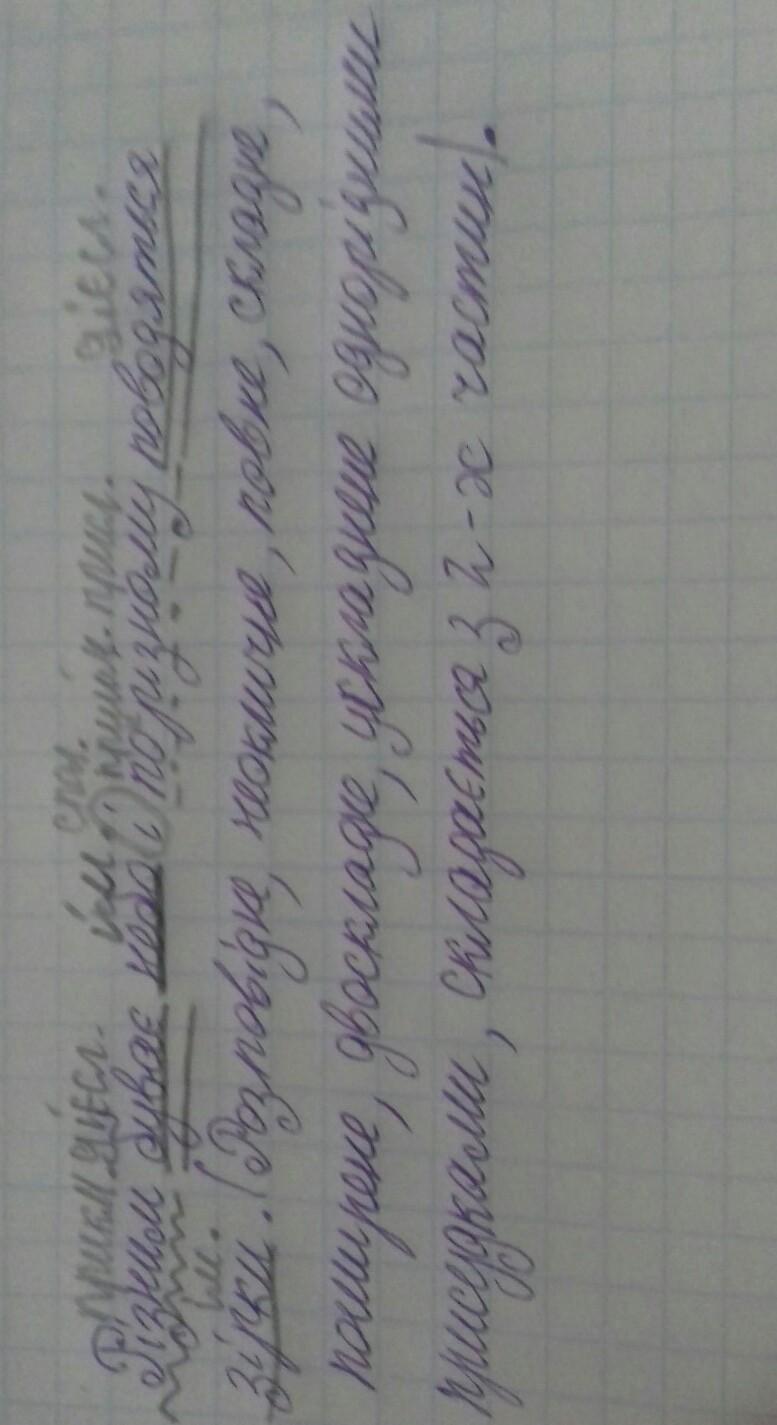 прикм. дієсл. ім. спол. прийм. присл. дієсл.
Різним буває небо і по різному поводяться
ім.
зірки. (Розповідне, неокличне, повне, складне,
поширене, двоскладне, ускладнене однорідними
присудками, складається з 2-х частин).